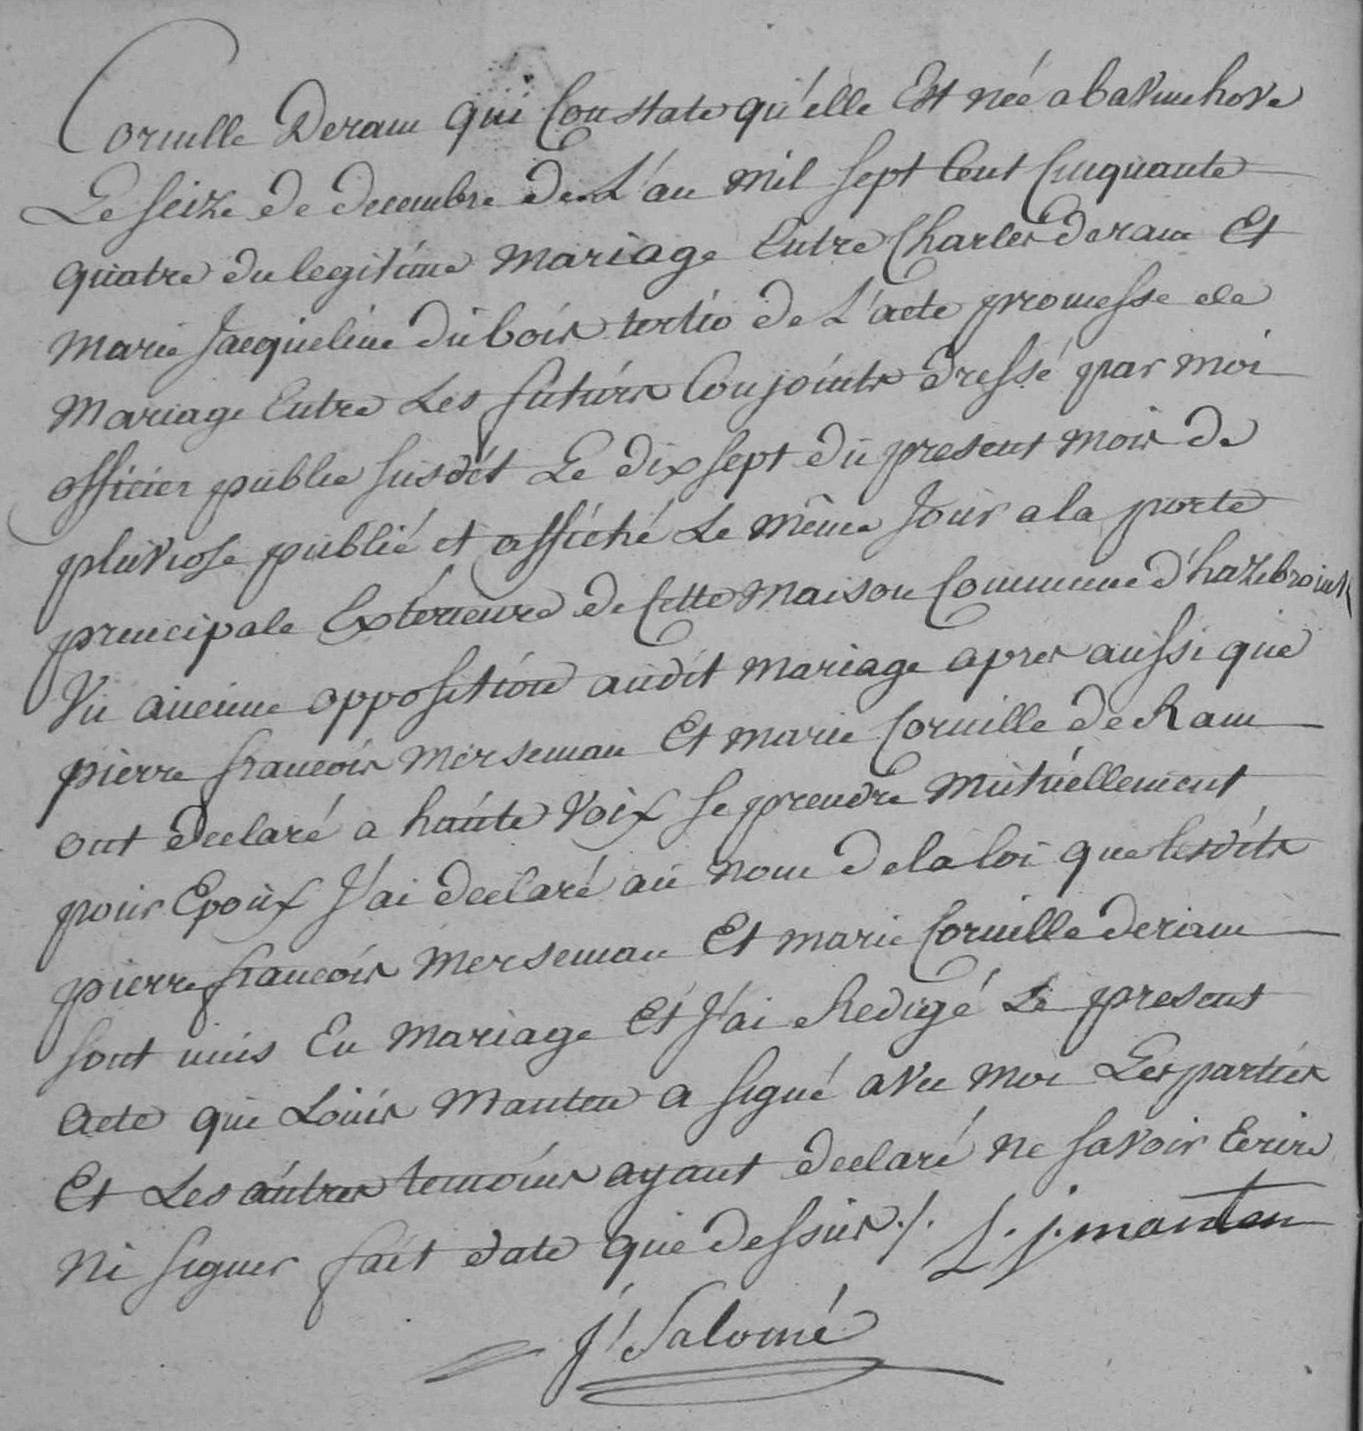 Cornille Deram qui Constate qu'elle Est née a bavinchove
Le seize de decembre de L'an mil sept Cent Cinquante
quatre du legitime mariage Entre Charles deram Et
marie Jacqueline dubois tertio de L'acte promesse de
mariage Entre Les futurs Conjoints dressé par moi
officier public susdit Le dix sept du present mois de
pluviose publié et affiché Le même Jour a la porte
principale Exterieure de Cette maison Commune d'hazebrouck
Vu aucune opposition audit mariage apres aussi que
pierre francois merseman Et marie Cornille de Ram
ont declaré a haute Voix se prendre mutuellement
pour Epoux J'ai declaré au nom de la loi que lesdits
pierre francois merseman Et marie Cornille deram
sont unis En mariage Et J'ai Redigé Le present
acte que Louis manten a signé avec moi Les parties
Et Les autres temoins ayant declaré ne savoir Ecrire
ni signer fait date que dessus ./. L. j. manten
J. Salomé